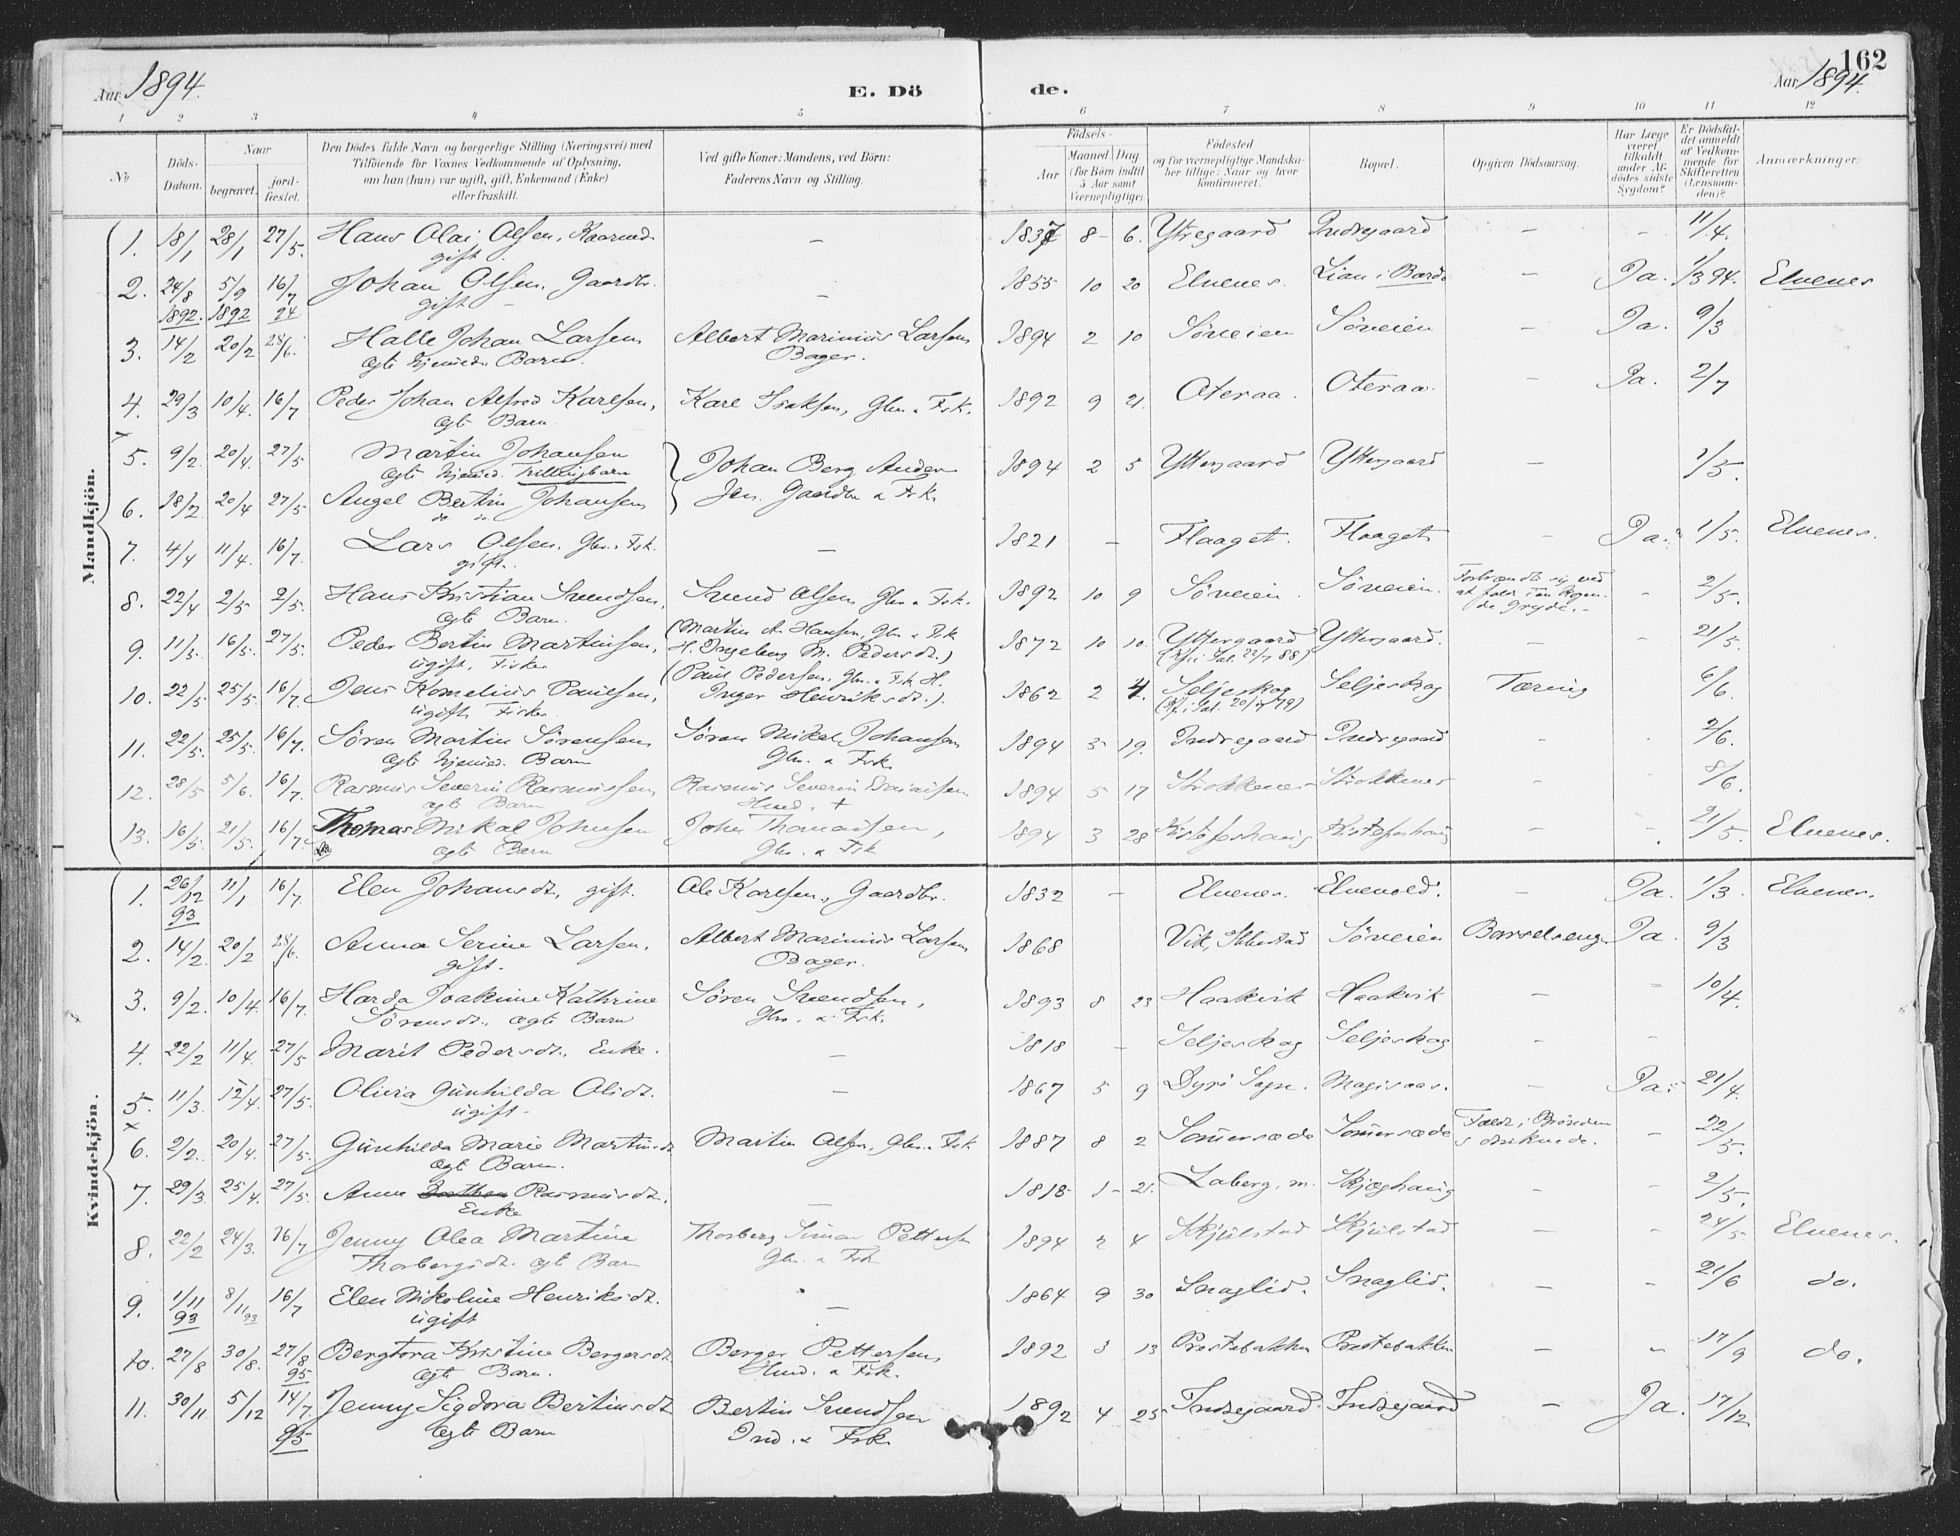 162
Aar 1894.
E. Dö
de.
Aar 1894.
1 2 3 4 5 6 7 8 9 10 11 12
No
Döds-Datum.
Naar
begravet.
jord-fæstet.
Den Dödes fulde Navn og borgerlige Stilling (Næringsvei) med
Tilföiende for Voxnes Vedkommende af Oplysning,
om han (hun) var ugift, gift, Enkemand (Enke)
eller fraskilt.
Ved gifte Koner: Mandens, ved Börn:
Faderens Navn og Stilling.
Födsels-
Aar
Maaned Dag
(for Börn indtil
5 Aar samt
Værnepligtige).
Födested
og for værnepligtige Mandska-
ber tillige: Naar og hvor
konfirmeret.
Bopæl.
Opgiven Dödsaarsag.
Har Læge
været
tilkaldt
under Af-
dödes sidste
Sygdom?
Er Dödsfal-
det anmeldt
af Vedkom-
mende for
Skifteretten
(Lensman-
den)?
Anmærkninger.
Mandkjön.
1. 18/1 28/1 27/5. Hans Olai Olsen, Kaarmd. gift. — 1837 8 6. Ytregaard Indregaard — - 11/4.
2. 24/8 1892. 5/9 1892 16/7 94 Johan Olsen, Gaardbr. gift — — 1855 10 20 Elvenes. Lian i Bardo — Ja. 1/3 94. Elvenes
3. 14/2 20/2 28/6. Halle Johan Larsen ægte hjemmed. Barn. Albert Marinius Larsen Bager. 1894 2 10 Söveien Söveien — Ja. 9/3
4. 29/3 10/4. 16/7 Peder Johan Alfred Karlsen, ægte Barn. Karl Isaksen, Gbr. & Fsk. 1892 9 21. Oteraa. Oteraa. — Ja. 2/7
5. 9/2. 20/4. 27/5 Martin Johansen ægte hjemmed. Trillingbarn Johan Berg Ander- 1894 2 5 Yttergaard Yttergaard — 1/5.
6. 18/2. 20/4 27/5. Angel Bertin Johansen do do. sen. Gaardbr. & Fsk.
7. 4/4 11/4. 16/7. Lars Olsen, Gbr. Fsk. gift. — 1821 — Flaaget. Flaaget — Ja. 1/5. Elvenes.
8. 22/4 2/5 2/5. Hans Kristian Svendsen, ægte Barn. Svend Olsen Gbr. & Fsk. 1892 10 9 Söveien Söveien. Forbrændte sig ved at falde i en kogen- de gryde. - 2/5.
9. 11/5. 16/5. 27/5. Peder Bertin Martinsen, ugift, Fisker (Martin A. Hansen, Gbr & Fsk H. Ingeborg M. Pedersdt.) 1872 10 10. Yttergaard Yttergaard. — 21/5.
10. 22/5 25/5 16/7. Jens Kornelius Paulsen, ugift Fisker (Paul Pedersen, Gbr. & Fsk H. Inger Henriksdt.). 1862 2 4. Seljeskog Seljeskog Tæring 6/6.
11. 22/5. 25/5. 16/7. Sören Martin Sörensen ægte hjemmed. Barn Sören Mikal Johansen Gbr. & Fsk. 1894 5 19. Indregaard Indregaard - - 2/6.
12. 28/5 5/6. 16/7. Rasmus Severin Rasmussen, ægte Barn Rasmus Severin Hmd. + 1894 5 17 Strokkenes Strokkenes - - 8/6.
13. 16/5 21/5. 16/7. Thomas Mikal Johnsen ægte Barn John Thomassen, Gbr. & Fsk 1894 3 28 — 21/5. Elvenes.
Kvindekjön.
1. 26/12 93 11/1 16/7 Elen Johansdt, gift. Ole Karlsen, Gaardbr. 1832 — Elvenes. Elvevold. — Ja. 1/3. Elvenes.
2. 14/2. 20/2 28/6. Anna Serine Larsen. gift. Albert Marinius Larsen Bager. 1868 Vik, Ibbestad Söveien Barselseng Ja. 9/3
3. 9/2. 10/4. 16/7. Harda Joakime Kathrine Sörensdt., ægte Barn Sören Svendsen, Gbr. & Fsk. 1893 8 23 Haakvik Haakvik — - 10/4.
4. 22/2 11/4. 27/5 Marit Pedersdt., Enke. — 1818 — Seljeskog Seljeskog - -
5. 11/3. 12/4. 27/5. Olivia Gunhilda Olsdt. ugift. — 1867 5 9 Dyrö Sogn. — Ja 21/4.
6. 2/2. 20/4. 27/5. Gunhilda Marie Martinsdt ægte Barn. Martin Olsen, Gbr. & Fsk 1887 8 2 Sommersæde Sommersæde Faldt i Brönden & druknede. - 22/5.
7. 29/3. 25/4. 27/5. Anne Rasmusdt. Enke — 1818 1 21. Laberg, m. Skjæghaug - - 2/5.
8. 22/2 24/3. 16/7 Jenny Olea Martine Thorbergsdt. ægte Barn Thorberg Simon Pettersen Gbr. & Fsk 1894 2 4 Skjulstad Skjulstad — - 24/5 Elvenes.
9. 1/11 93 8/11 93 16/7 Elen Nikoline Henriksdt. ugift — 1864 9 30 Snaglid. Snaglid. — - 21/6 do.
10. 27/8 30/8. 27/8 95 Bergtora Kristine Bergersdt ægte Barn. Berger Pettersen, Hmd. & Fsk. 1892 3 13 Prestebakken Prestebakken — - 17/9 do.
11. 30/11 5/12 14/7. 95 Jenny Sigdora Bertinsdt ægte Barn Bertin Svendsen Ind. & Fsk. 1892 4 25 Indregaard. Indregaard — Ja. 17/12.